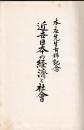 本庄先生古稀記念
近世日本の経済と社會